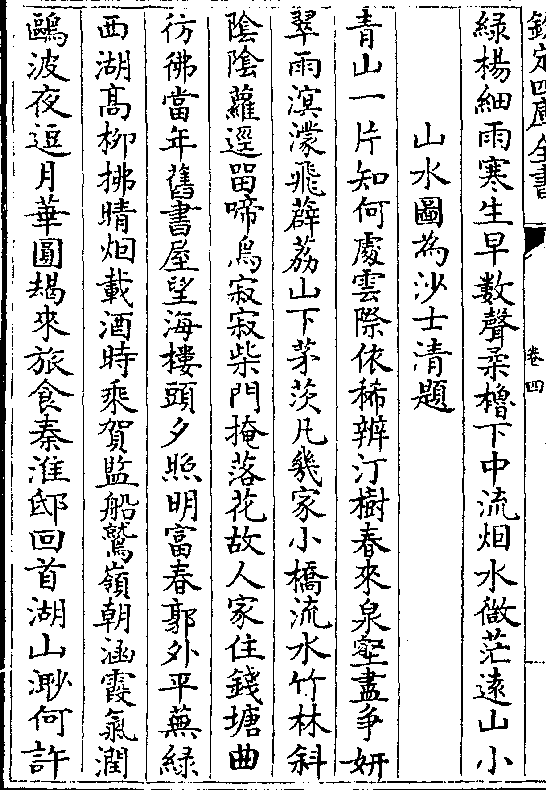 欽定四庫全書
卷四
綠楊細雨寒生早數聲柔櫓下中流烟水微茫遠山小
山水圖為沙士清題
青山一片知何處雲際依稀辨汀樹春來泉壑盡爭妍
翠雨溟濛飛薜荔山下茅茨凡幾家小橋流水竹林斜
陰陰蘿逕留啼鳥寂寂柴門掩落花故人家住錢塘曲
彷彿當年舊書屋望海樓頭夕照明富春郭外平蕪綠
西湖髙栁拂晴烟載酒時乘賀監船鷲嶺朝涵霞氣潤
鷗波夜逗月華圓朅來旅食秦淮邸回首湖山渺何許